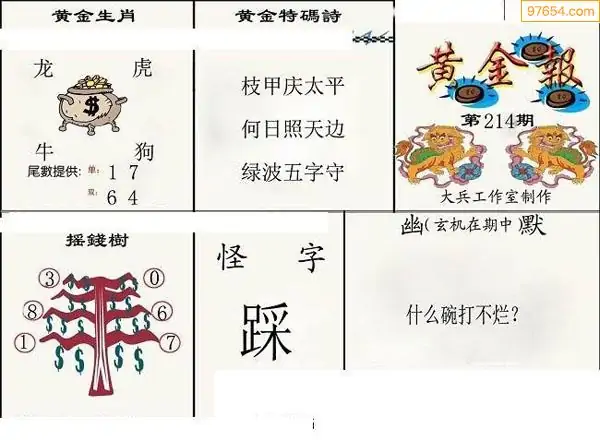 97654.com
黄金生肖
龙 虎
$
牛 狗
尾數提供: 单: 1 7
双: 6 4
黄金特碼詩
枝甲庆太平
何日照天边
绿波五字守
黄金報
第214期
大兵工作室制作
摇錢樹
③ ⓪
⑧ ⑥
① ⑦
$ $ $ $ $ $ $ $ $ $ $ $
怪 字
踩
幽(玄机在期中)默
什么碗打不烂?
i